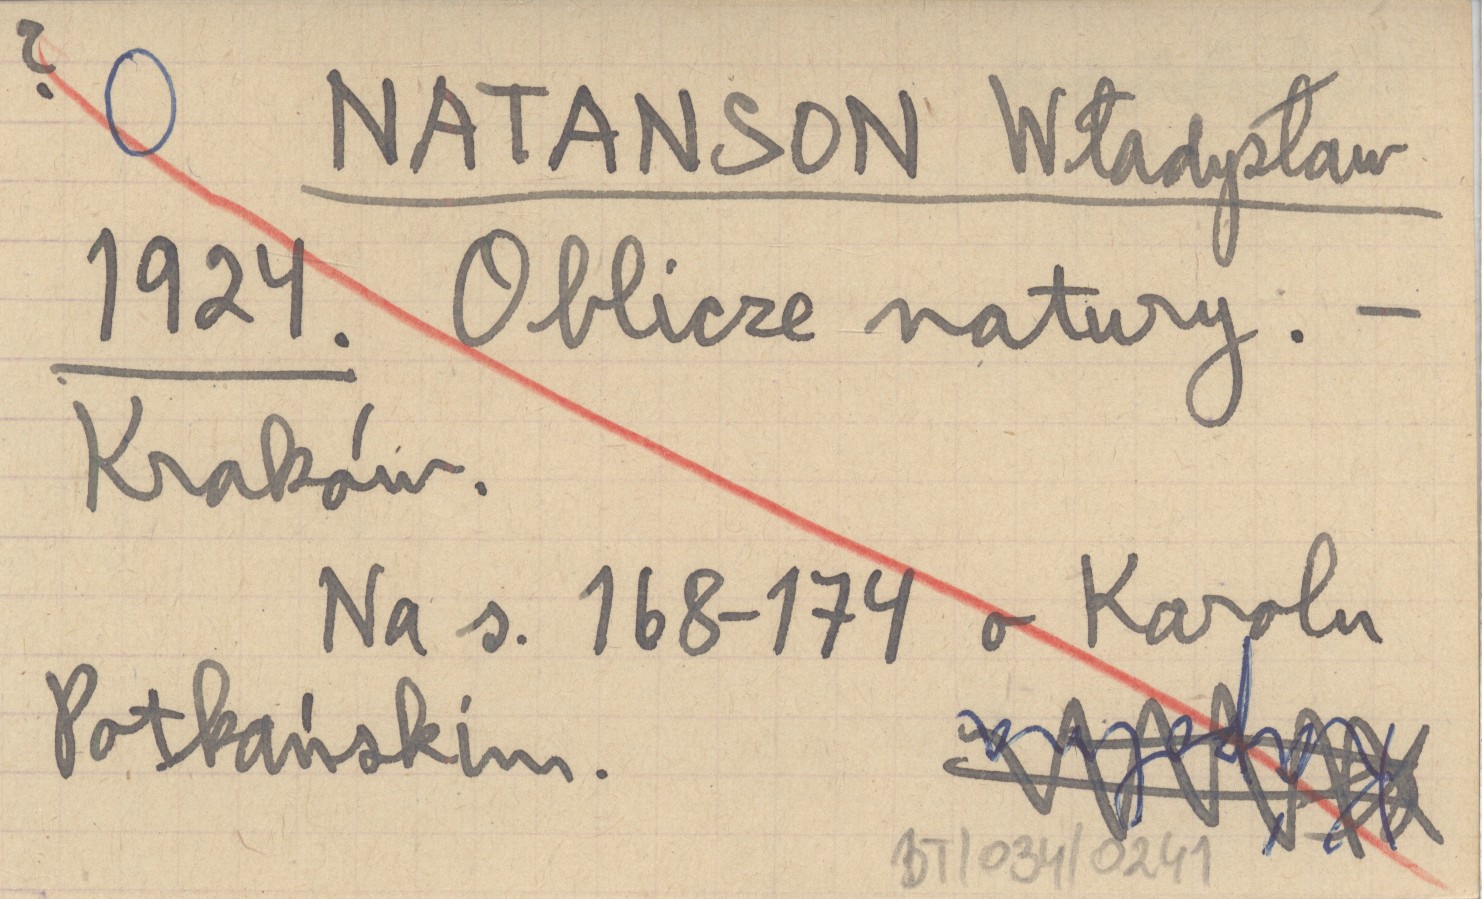 ?
NATANSON Władysław
1924. Oblicze natury. –
Kraków.
Na s. 168-174 o Karolu
Potkańskim.
BT/034/0241